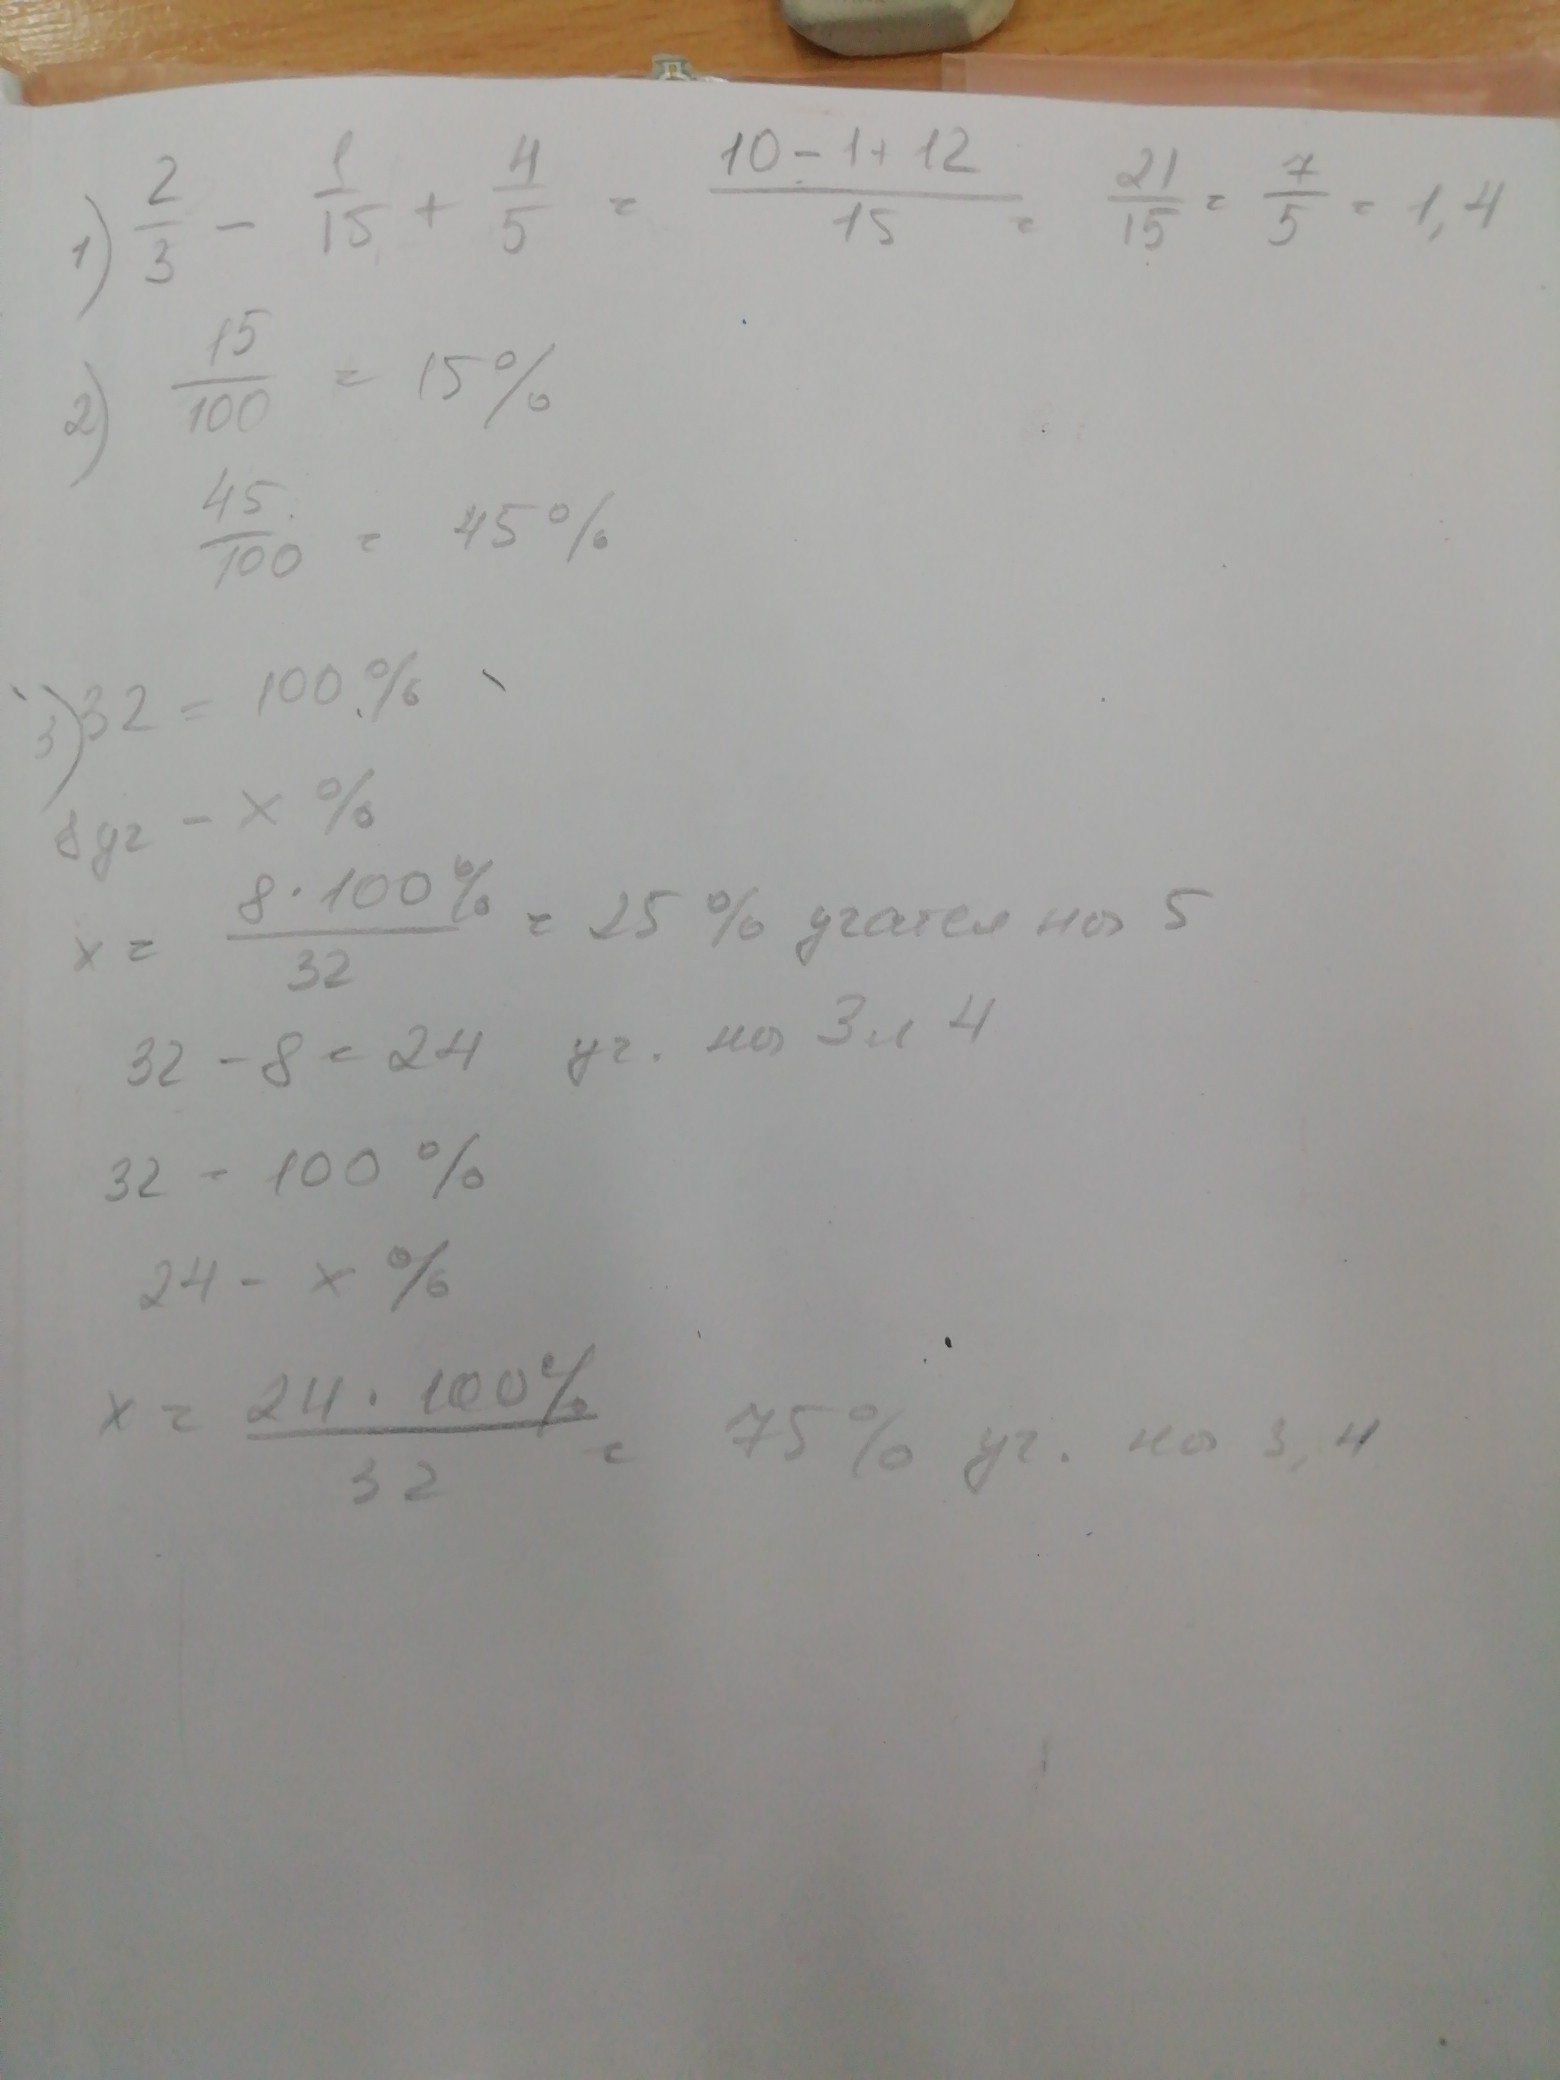 1) 2/3 - 1/15 + 4/5 = (10-1+12)/15 = 21/15 = 7/5 = 1,4
2) 15/100 = 15%
45/100 = 45%
3) 32 = 100%
8 уч - x %
x = (8·100%)/32 = 25% учатся на 5
32 - 8 = 24 уч. на 3 и 4
32 - 100 %
24 - x %
x = (24·100%)/32 = 75% уч. на 3, 4